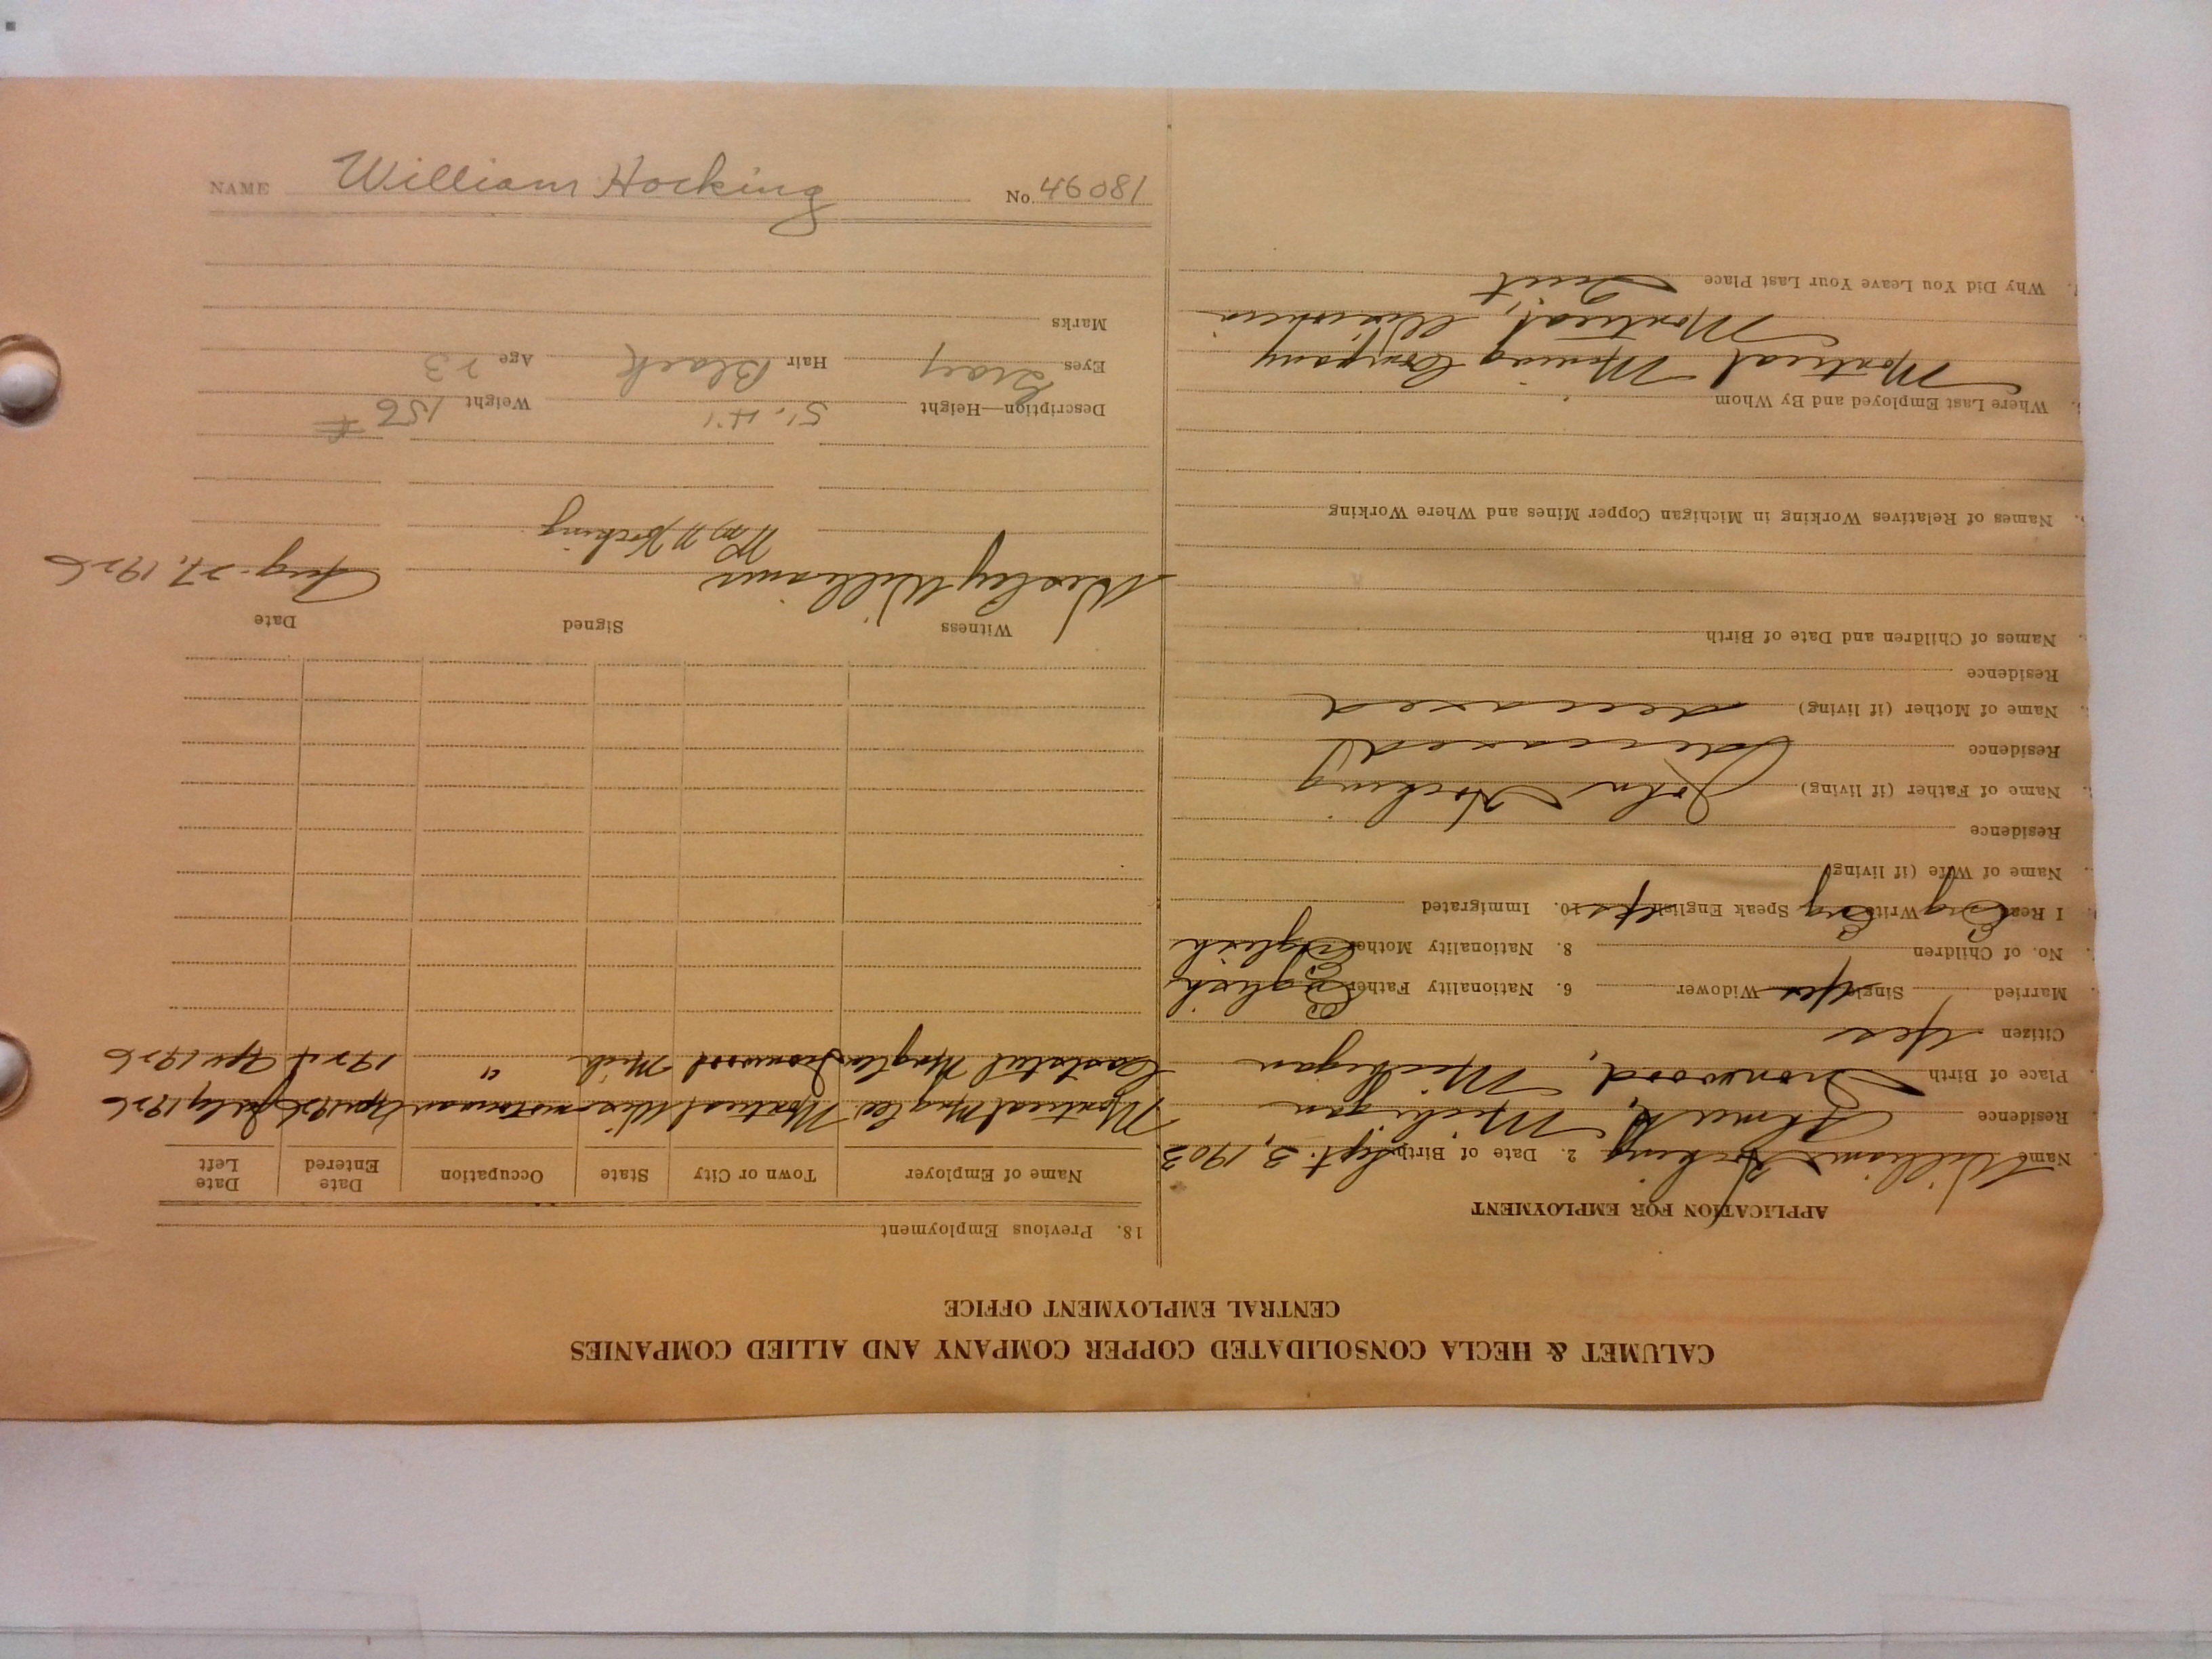 CALUMET & HECLA CONSOLIDATED COPPER COMPANY AND ALLIED COMPANIES
CENTRAL EMPLOYMENT OFFICE
APPLICATION FOR EMPLOYMENT
Name William Hocking 2. Date of Birth Sept. 3, 1903
Residence Ahmeek, Michigan
Place of Birth Ironwood, Michigan
Citizen Yes
Married Single Yes Widower 6. Nationality Father English
No. of Children 8. Nationality Mother English
I Read Eng Write Eng Speak English Yes 10. Immigrated
Name of Wife (if living)
Residence
Name of Father (if living) John Hocking
Residence deceased
Name of Mother (if living) deceased
Residence
Names of Children and Date of Birth
Names of Relatives Working in Michigan Copper Mines and Where Working
Where Last Employed and By Whom
Montreal Mining Company
Montreal, Wisconsin
Why Did You Leave Your Last Place Quit
18. Previous Employment
Name of Employer Town or City State Occupation Date Entered Date Left
Montreal Mng Co. Montreal Wis motorman Apr 1926 July 1926
Mng Co Ironwood Mich " Apr 1926
Witness Signed Date
Wesley Williams Wm Hocking Aug. 27, 1926
Description—Height 5' 4" Weight 156 #
Eyes Gray Hair Black Age 23
Marks
NAME William Hocking No. 46081